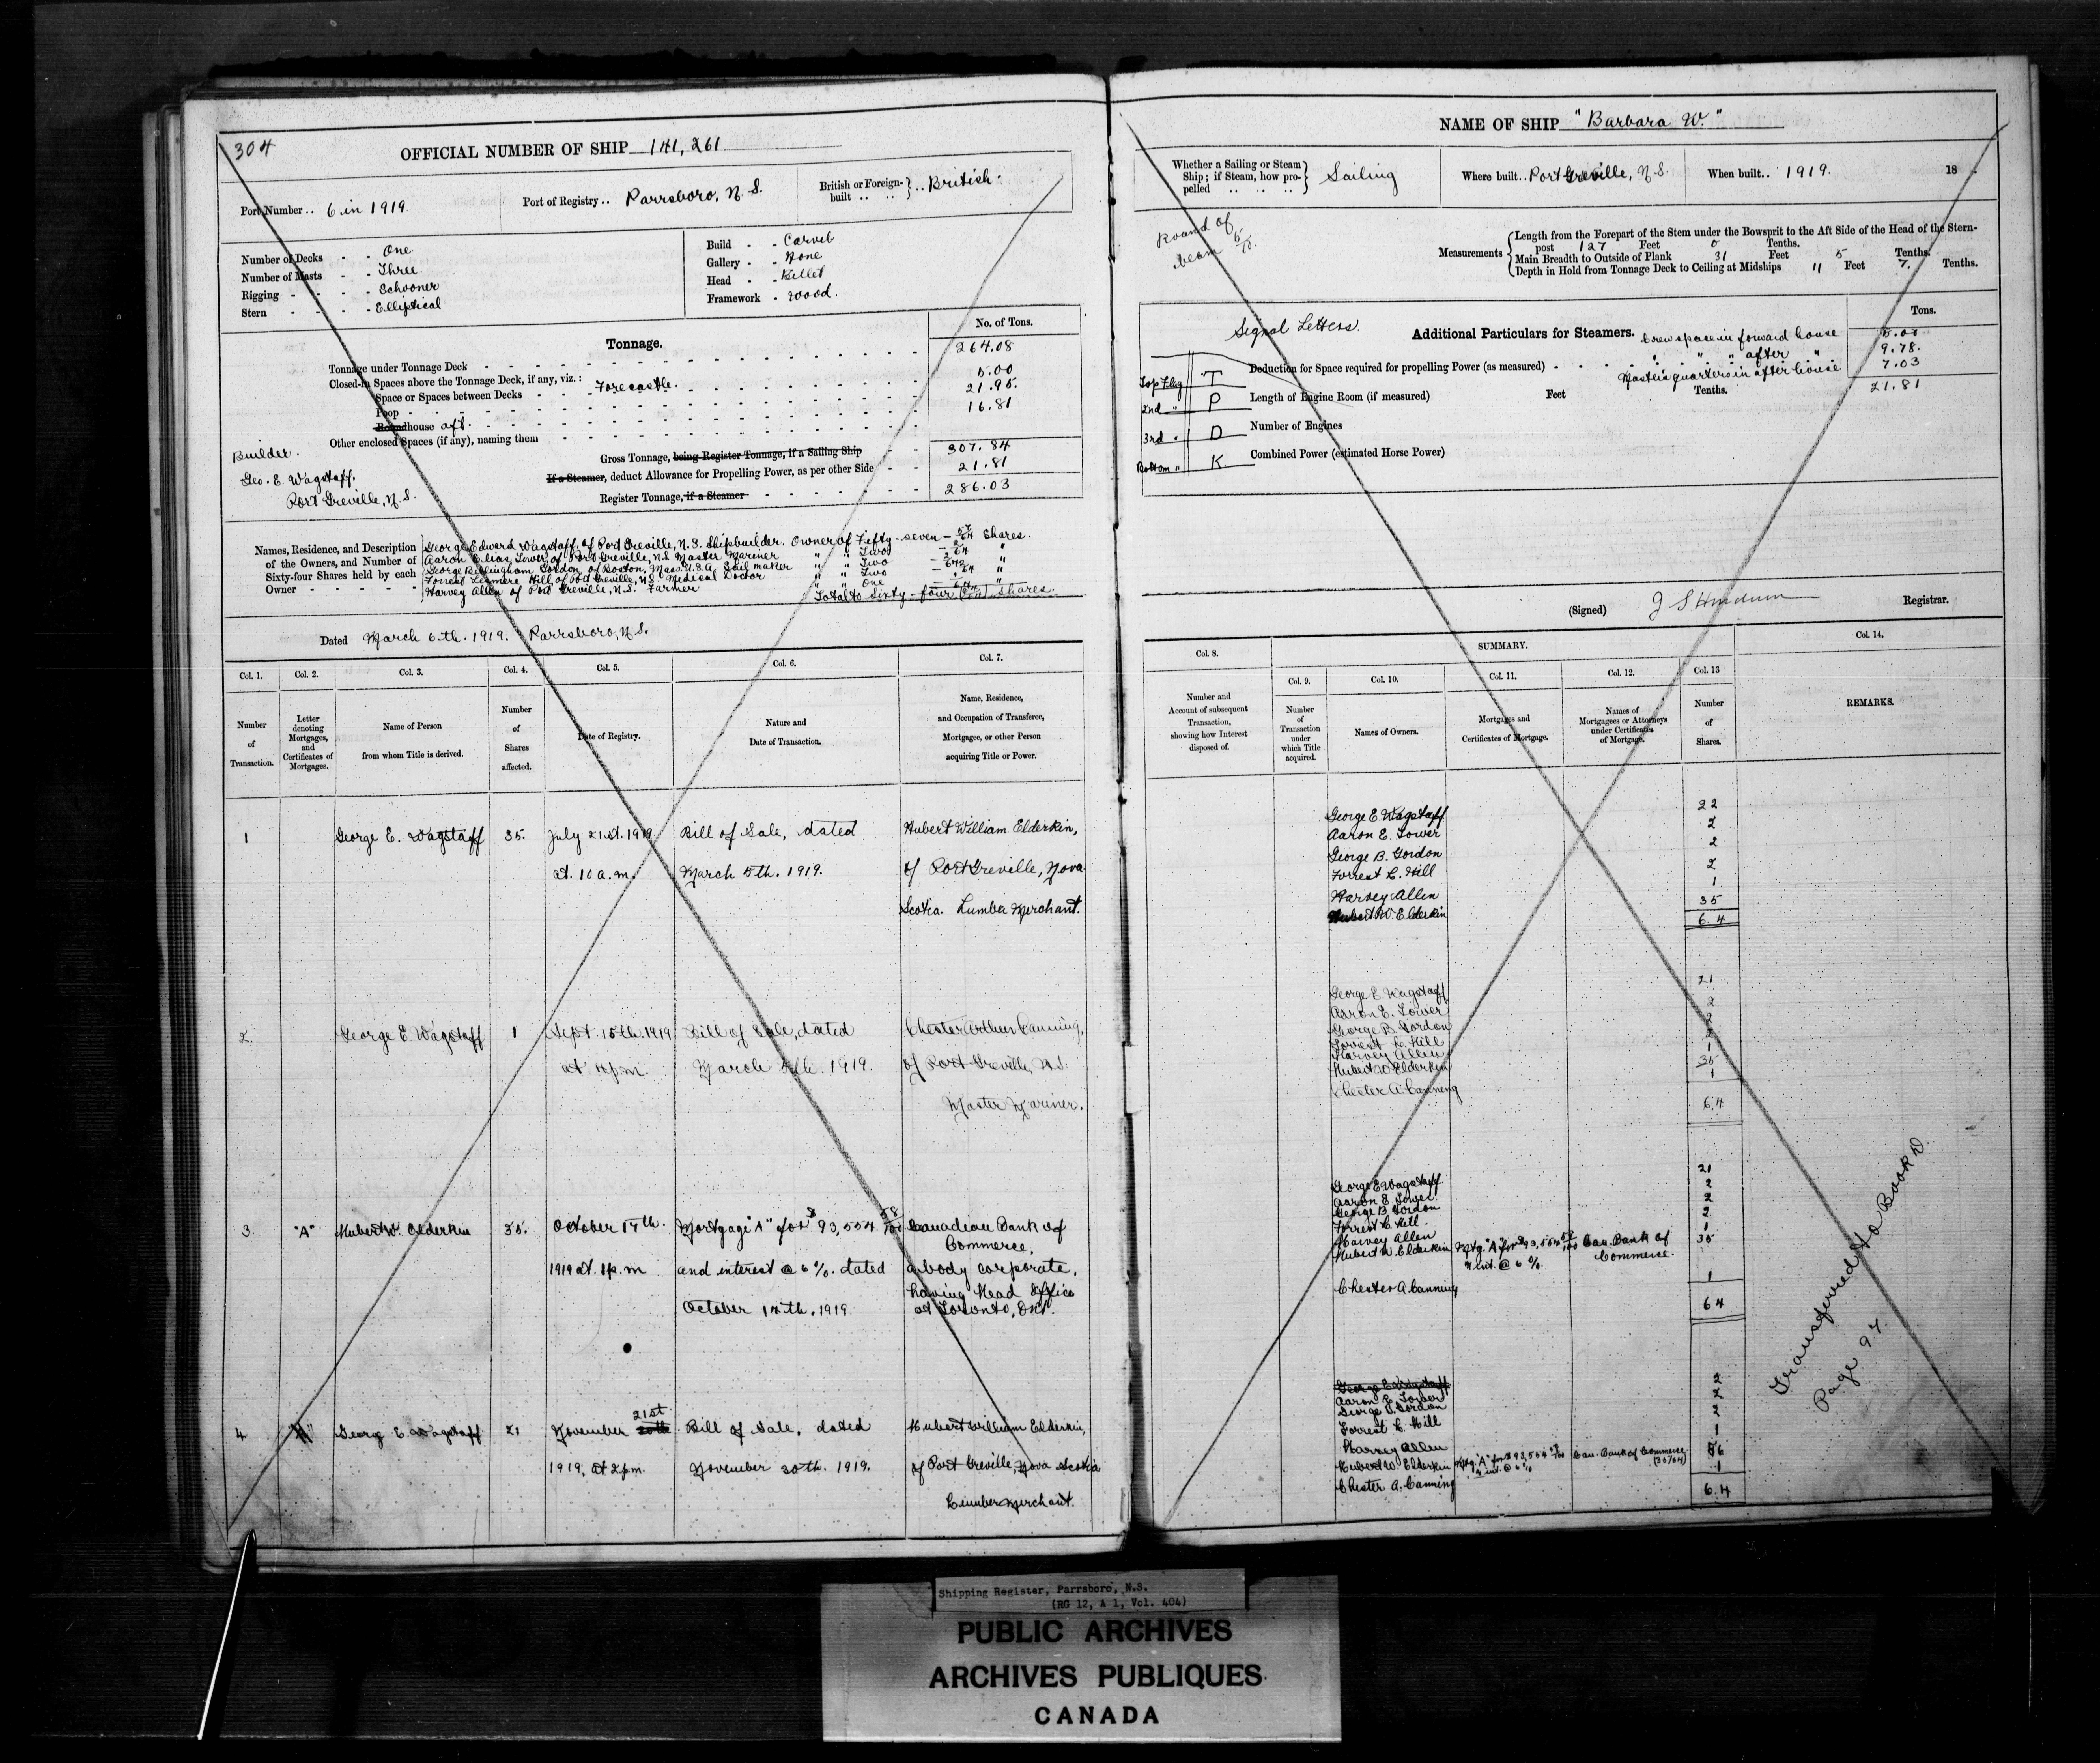 304
OFFICIAL NUMBER OF SHIP 141,261
Port Number .. 6 in 1919.
Port of Registry .. Parrsboro, N.S.
British or Foreign-built .. .. } .. British.
Number of Decks - - One
Number of Masts - - Three
Rigging - - - - Schooner
Stern - - - - Elliptical
Build - - Carvel
Gallery - - None
Head - - Billet
Framework - Wood.
Tonnage.
No. of Tons.
Tonnage under Tonnage Deck 264.08
Closed-in Spaces above the Tonnage Deck, if any, viz.:
Space or Spaces between Decks - - Forecastle. 5.00
Poop 21.95.
Roundhouse aft. 16.81
Other enclosed Spaces (if any), naming them
Gross Tonnage, being Register Tonnage, if a Sailing Ship 307.84
If a Steamer, deduct Allowance for Propelling Power, as per other Side 21.81
Register Tonnage, if a Steamer 286.03
Builder.
Geo. E. Wagstaff,
Port Greville, N.S.
Names, Residence, and Description of the Owners, and Number of Sixty-four Shares held by each Owner
George Edward Wagstaff, of Port Greville, N.S. Shipbuilder. Owner of Fifty-seven - 57/64 Shares.
Aaron Elias Tower, of Port Greville, N.S. Master Mariner " " Two - 2/64 "
George Gordon, of Boston, Mass. U.S.A. Sail maker " " Two - 2/64 "
Forrest Hill, of Port Greville, N.S. Medical Doctor " " Two - 2/64 "
Harvey Allen of Port Greville, N.S. Farmer " " One - 1/64 "
Total to Sixty-four (64) Shares.
Dated March 6th. 1919. Parrsboro, N.S.
Col. 1. Col. 2. Col. 3. Col. 4. Col. 5. Col. 6. Col. 7.
Number of Transaction.
Letter denoting Mortgages, and Certificates of Mortgages.
Name of Person from whom Title is derived.
Number of Shares affected.
Date of Registry.
Nature and Date of Transaction.
Name, Residence, and Occupation of Transferee, Mortgagee, or other Person acquiring Title or Power.
1 George E. Wagstaff 35. July 21st. 1919 Bill of Sale, dated Hubert William Elderkin,
at 10 a.m. March 5th. 1919. of Port Greville, Nova
Scotia. Lumber Merchant.
2. George E. Wagstaff 1 Sept. 15th. 1919 Bill of Sale, dated Chester Arthur Canning,
at p.m. March 5th. 1919. of Port Greville, N.S.
Master Mariner.
3. "A" Hubert W. Elderkin 35. October 17th. Mortgage "A" for $93,554 58/100 Canadian Bank of
Commerce,
1919 at 1 p.m and interest @ 6%. dated a body corporate,
having Head Office
October 14th. 1919. at Toronto, Ont.
4 George E. Wagstaff 21 November 21st Bill of Sale, dated Hubert William Elderkin,
1919, at 2 p.m. November 20th. 1919. of Port Greville, Nova Scotia
Lumber Merchant.
NAME OF SHIP "Barbara W."
Whether a Sailing or Steam Ship; if Steam, how propelled .. .. .. } Sailing
Where built .. Port Greville, N.S.
When built .. 1919. 18
Round of
beam 5/10.
Measurements
Length from the Forepart of the Stem under the Bowsprit to the Aft Side of the Head of the Stern-
post 127 Feet 0 Tenths.
Main Breadth to Outside of Plank 31 Feet 5 Tenths.
Depth in Hold from Tonnage Deck to Ceiling at Midships 11 Feet 7. Tenths.
Signal Letters.
Top Flag T
2nd " P
3rd " D
Bottom " K
Additional Particulars for Steamers.
Tons.
Crew space in forward house 5.00
" " " after " 9.78.
Master's quarters in after house 7.03
21.81
Deduction for Space required for propelling Power (as measured)
Length of Engine Room (if measured) Feet Tenths.
Number of Engines
Combined Power (estimated Horse Power)
(Signed) Registrar.
SUMMARY.
Col. 8. Col. 9. Col. 10. Col. 11. Col. 12. Col. 13 Col. 14.
Number and Account of subsequent Transaction, showing how Interest disposed of.
Number of Transaction under which Title acquired.
Names of Owners.
Mortgages and Certificates of Mortgage.
Names of Mortgagees or Attorneys under Certificates of Mortgage.
Number of Shares.
REMARKS.
George E. Wagstaff 22
Aaron E. Tower 2
George B. Gordon 2
Forrest L. Hill 2
Harvey Allen 1
Hubert W. Elderkin 35
64
George E. Wagstaff 21
Aaron E. Tower 2
George B. Gordon 2
Forrest L. Hill 2
Harvey Allen 1
Hubert W. Elderkin 35
Chester A. Canning 1
64
George E. Wagstaff 21
Aaron E. Tower 2
George B. Gordon 2
Forrest L. Hill 2
Harvey Allen 1
Hubert W. Elderkin Mtg. "A" for $93,554 58/100 Can. Bank of 35
& int. @ 6%. Commerce.
Chester A. Canning 1
64
George E. Wagstaff
Aaron E. Tower 2
George B. Gordon 2
Forrest L. Hill 2
Harvey Allen 1
Hubert W. Elderkin Mtg. "A" for $93,554 58/100 Can. Bank of Commerce 56
& int. @ 6% (35/64)
Chester A. Canning 1
64
Transferred to Book D
Page 97.
Shipping Register, Parrsboro, N.S.
(RG 12, A 1, Vol. 404)
PUBLIC ARCHIVES
ARCHIVES PUBLIQUES
CANADA